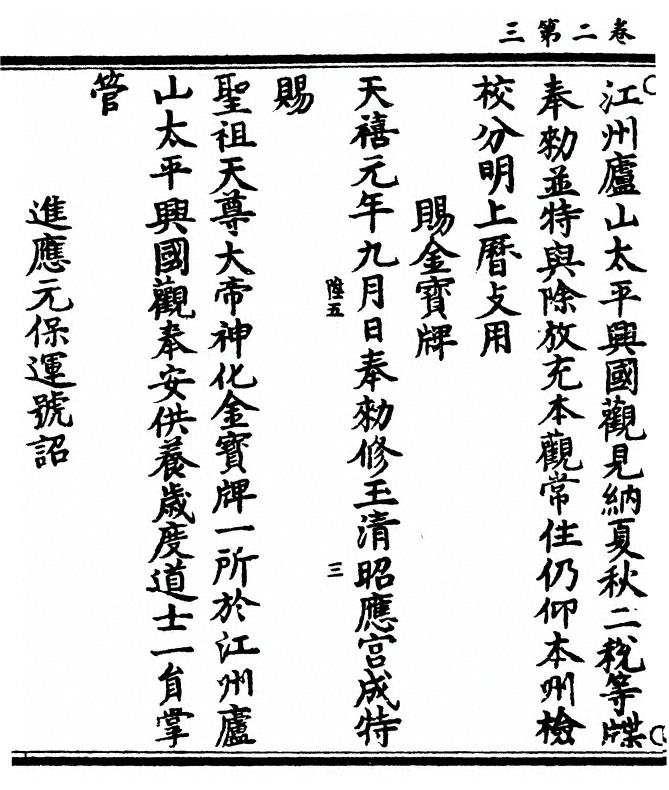 三第二卷
江州廬山太平興國觀見納夏秋二稅等牒
奉勑並特與除放充本觀常住仍仰本州檢
校分明上曆支用
賜金寶牌
天禧元年九月日奉勑修玉清昭應宮成特
陸五
三
賜
聖祖天尊大帝神化金寶牌一所於江州廬
山太平興國觀奉安供養歲度道士一負掌
管
進應元保運號詔